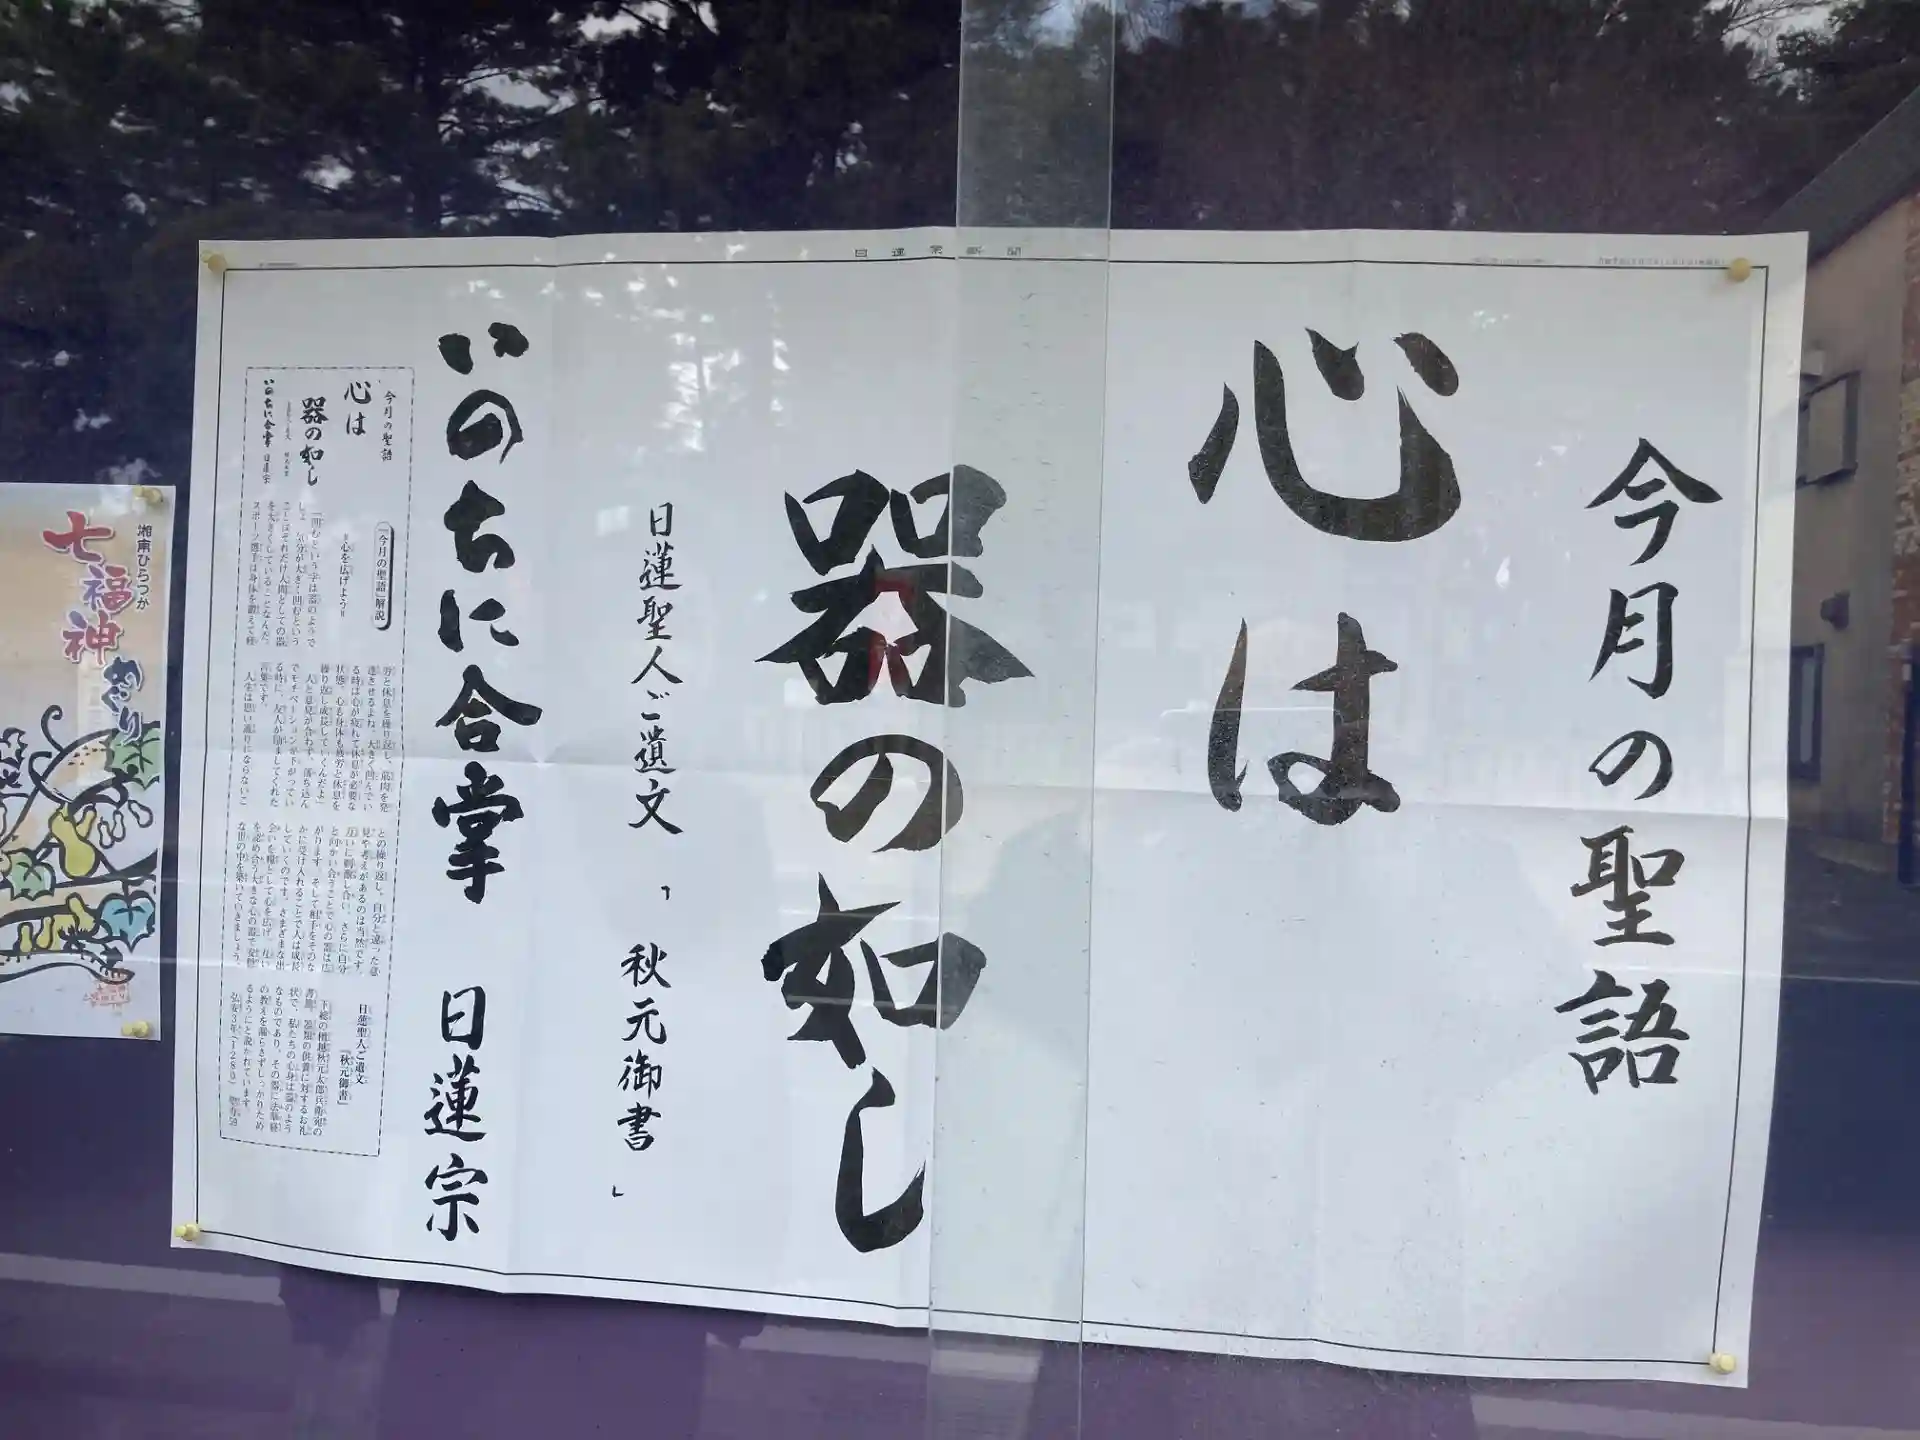 日蓮宗新聞
今月の聖語
心は
器の如し
日蓮聖人ご遺文
「秋元御書」
いのちに合掌 日蓮宗
今月の聖語
心は
器の如し
いのちに合掌 日蓮宗
「今月の聖語」解説
＝心を広げよう＝
「凹むという字は器のようで
ことはそれだけ人間としての器
を大きくしていることなんだ。
スポーツ選手は身体を鍛えて疲
労と休息を繰り返し、筋肉を発
達させるよね。大きく凹んでい
る時は心が疲れて休息が必要な
状態。心も身体も疲労と休息を
繰り返し成長していくんだよ」
人と意見が合わず、落ち込ん
でモチベーションが下がってい
る時に、友人が励ましてくれた
言葉です。
人生は思い通りにならないこ
との繰り返し。自分と違った意
見や考えがあるのは当然です。
互いに刺激し合い、さらに自分
と向かい合うことで心の器は広
がります。そして相手をそのな
かに受け入れることで人は成長
していくのです。さまざまな出
会いを糧として心を広げ、互い
を認め合う大きな心の器で安穏
な世の中を築いていきましょう。
日蓮聖人ご遺文
『秋元御書』
下総の檀越秋元太郎兵衛宛の
書簡。器類の供養に対するお礼
状で、私たちの心身は器のよう
なものであり、その器に法華経
の教えを漏らさずしっかりため
るようにと説かれています。
弘安3年(1280) 聖寿59
湘南ひらつか
七福神
めぐり